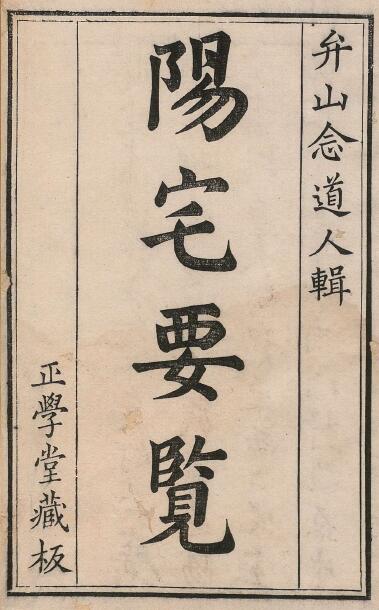 弁山念道人輯
陽宅要覽
正學堂藏板